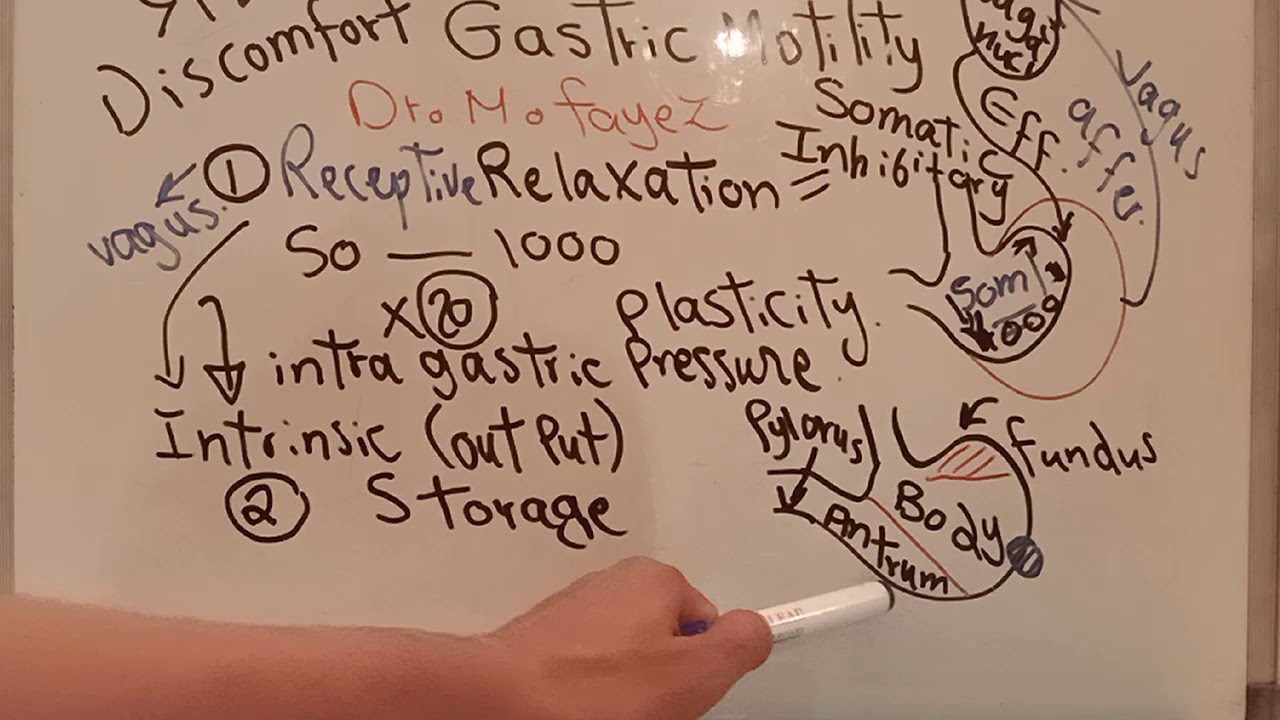 Discomfort Gastric Motility
Dr. Mofayez
① Receptive Relaxation = Somatic Inhibitory
vagus.
50 — 1000
x 20 Plasticity.
intra gastric Pressure.
Intrinsic (out Put)
② Storage
vagal
nucl
Eff.
affer.
vagus
50ml
1000
Pylorus
fundus
Body
Antrum